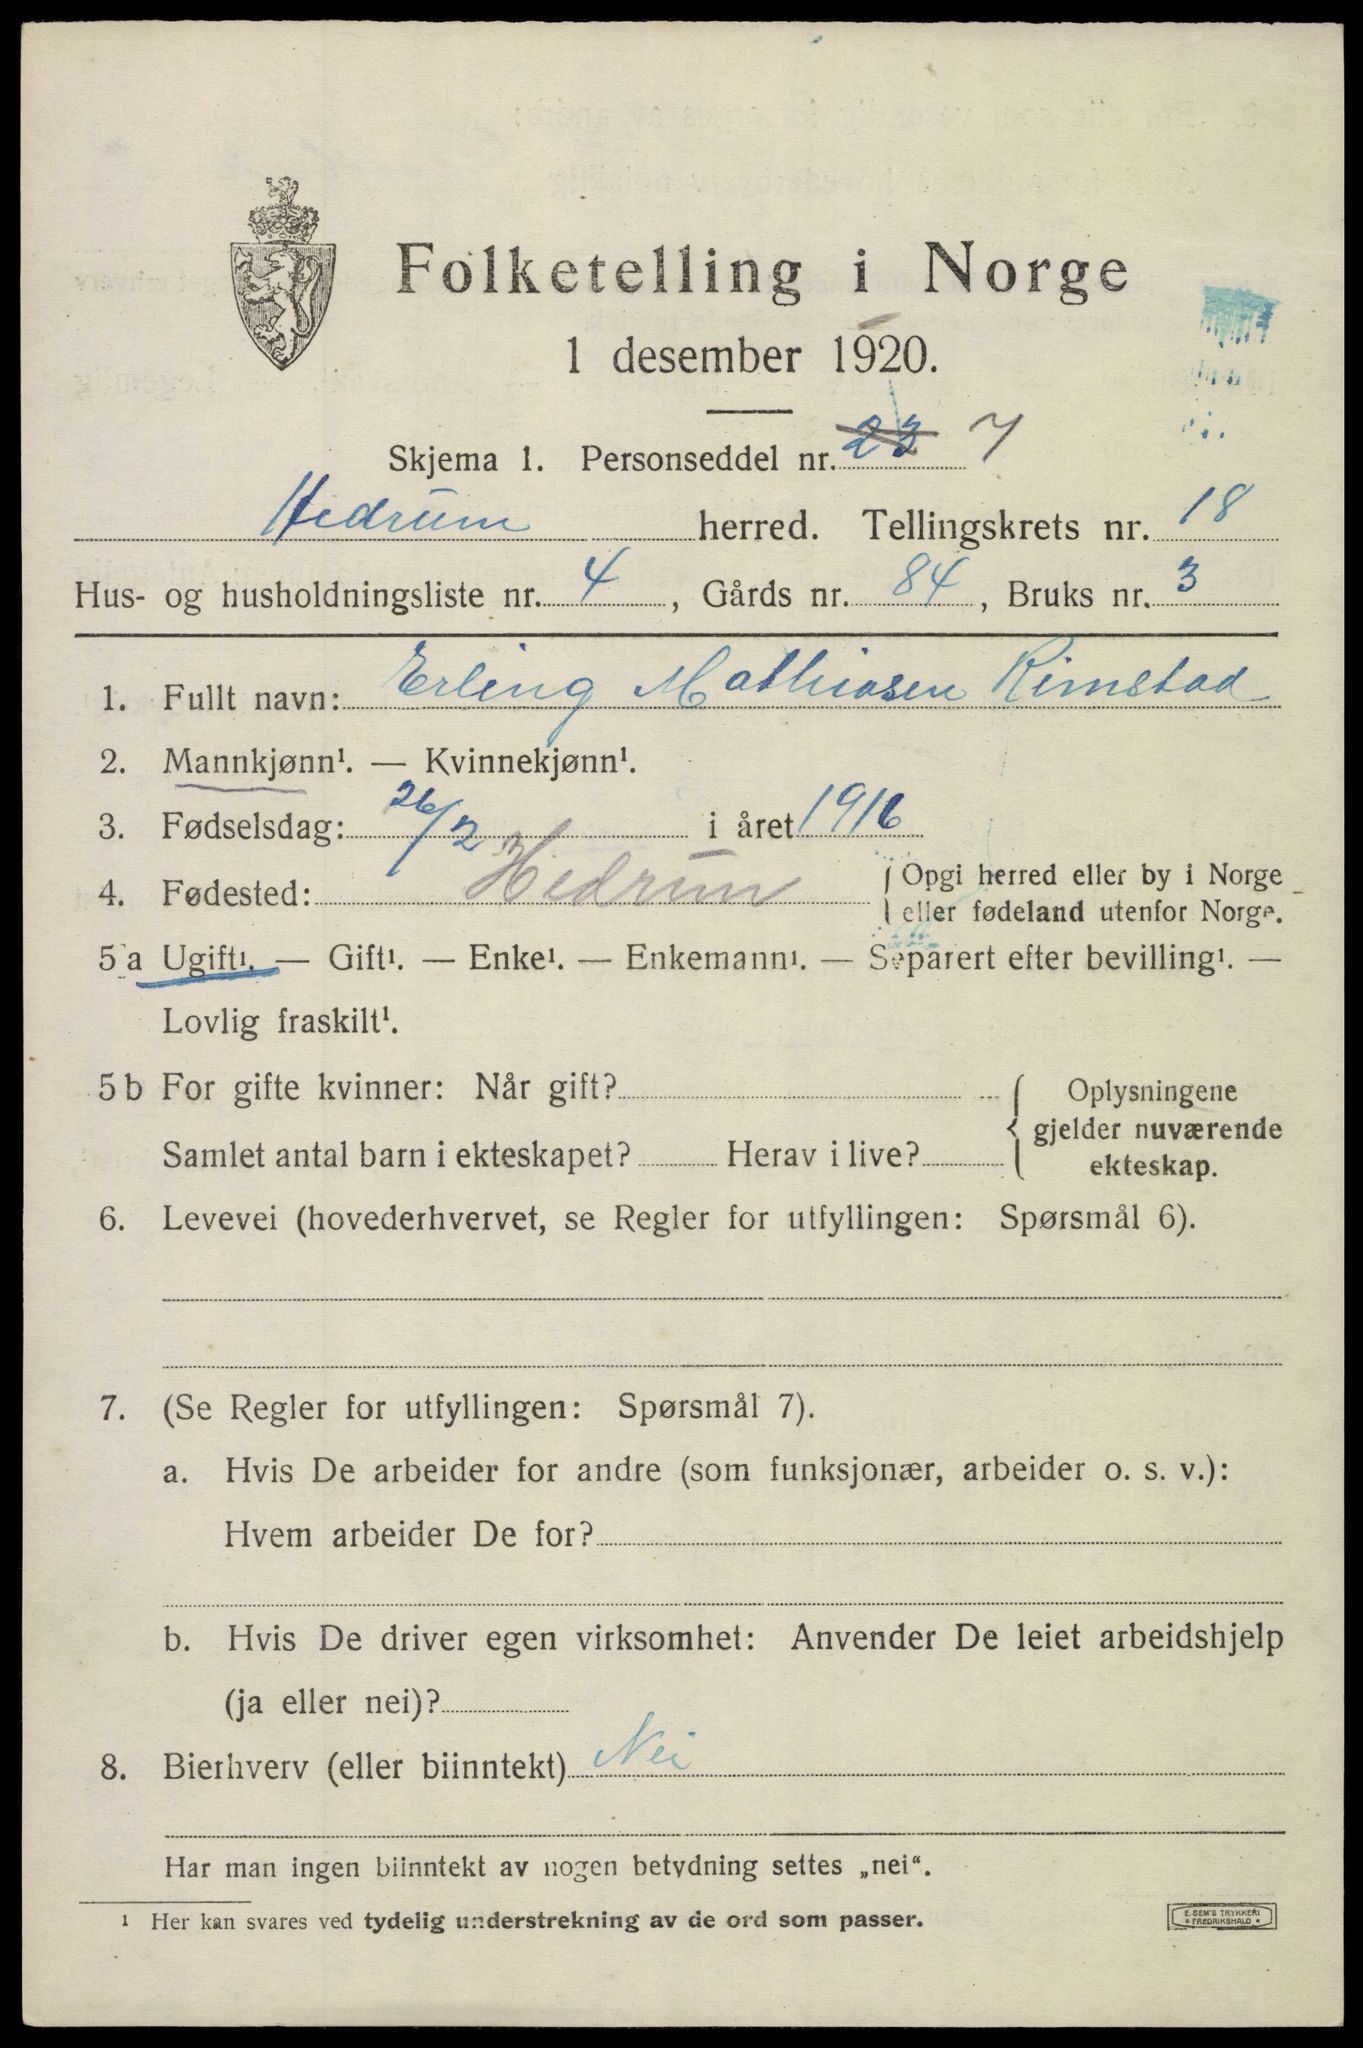 Folketelling i Norge
1 desember 1920.
Skjema 1. Personseddel nr. 23 7
Hedrum herred. Tellingskrets nr. 18
Hus- og husholdningsliste nr. 4, Gårds nr. 84, Bruks nr. 3
1. Fullt navn: Erling Mathiasen Rimstad
2. Mannkjønn¹. — Kvinnekjønn¹.
3. Fødselsdag: 26/2 i året 1916
4. Fødested: Hedrum { Opgi herred eller by i Norge
eller fødeland utenfor Norge.
5 a Ugift¹. — Gift¹. — Enke¹. — Enkemann¹. — Separert efter bevilling¹. —
Lovlig fraskilt¹.
5 b For gifte kvinner: Når gift? { Oplysningene
gjelder nuværende
Samlet antal barn i ekteskapet? Herav i live? ekteskap.
6. Levevei (hovederhvervet, se Regler for utfyllingen: Spørsmål 6).
7. (Se Regler for utfyllingen: Spørsmål 7).
a. Hvis De arbeider for andre (som funksjonær, arbeider o. s. v.):
Hvem arbeider De for?
b. Hvis De driver egen virksomhet: Anvender De leiet arbeidshjelp
(ja eller nei)?
8. Bierhverv (eller biinntekt) Nei
Har man ingen biinntekt av nogen betydning settes „nei“.
¹ Her kan svares ved tydelig understrekning av de ord som passer.
E. SEM'S TRYKKERI
* FREDRIKSHALD *